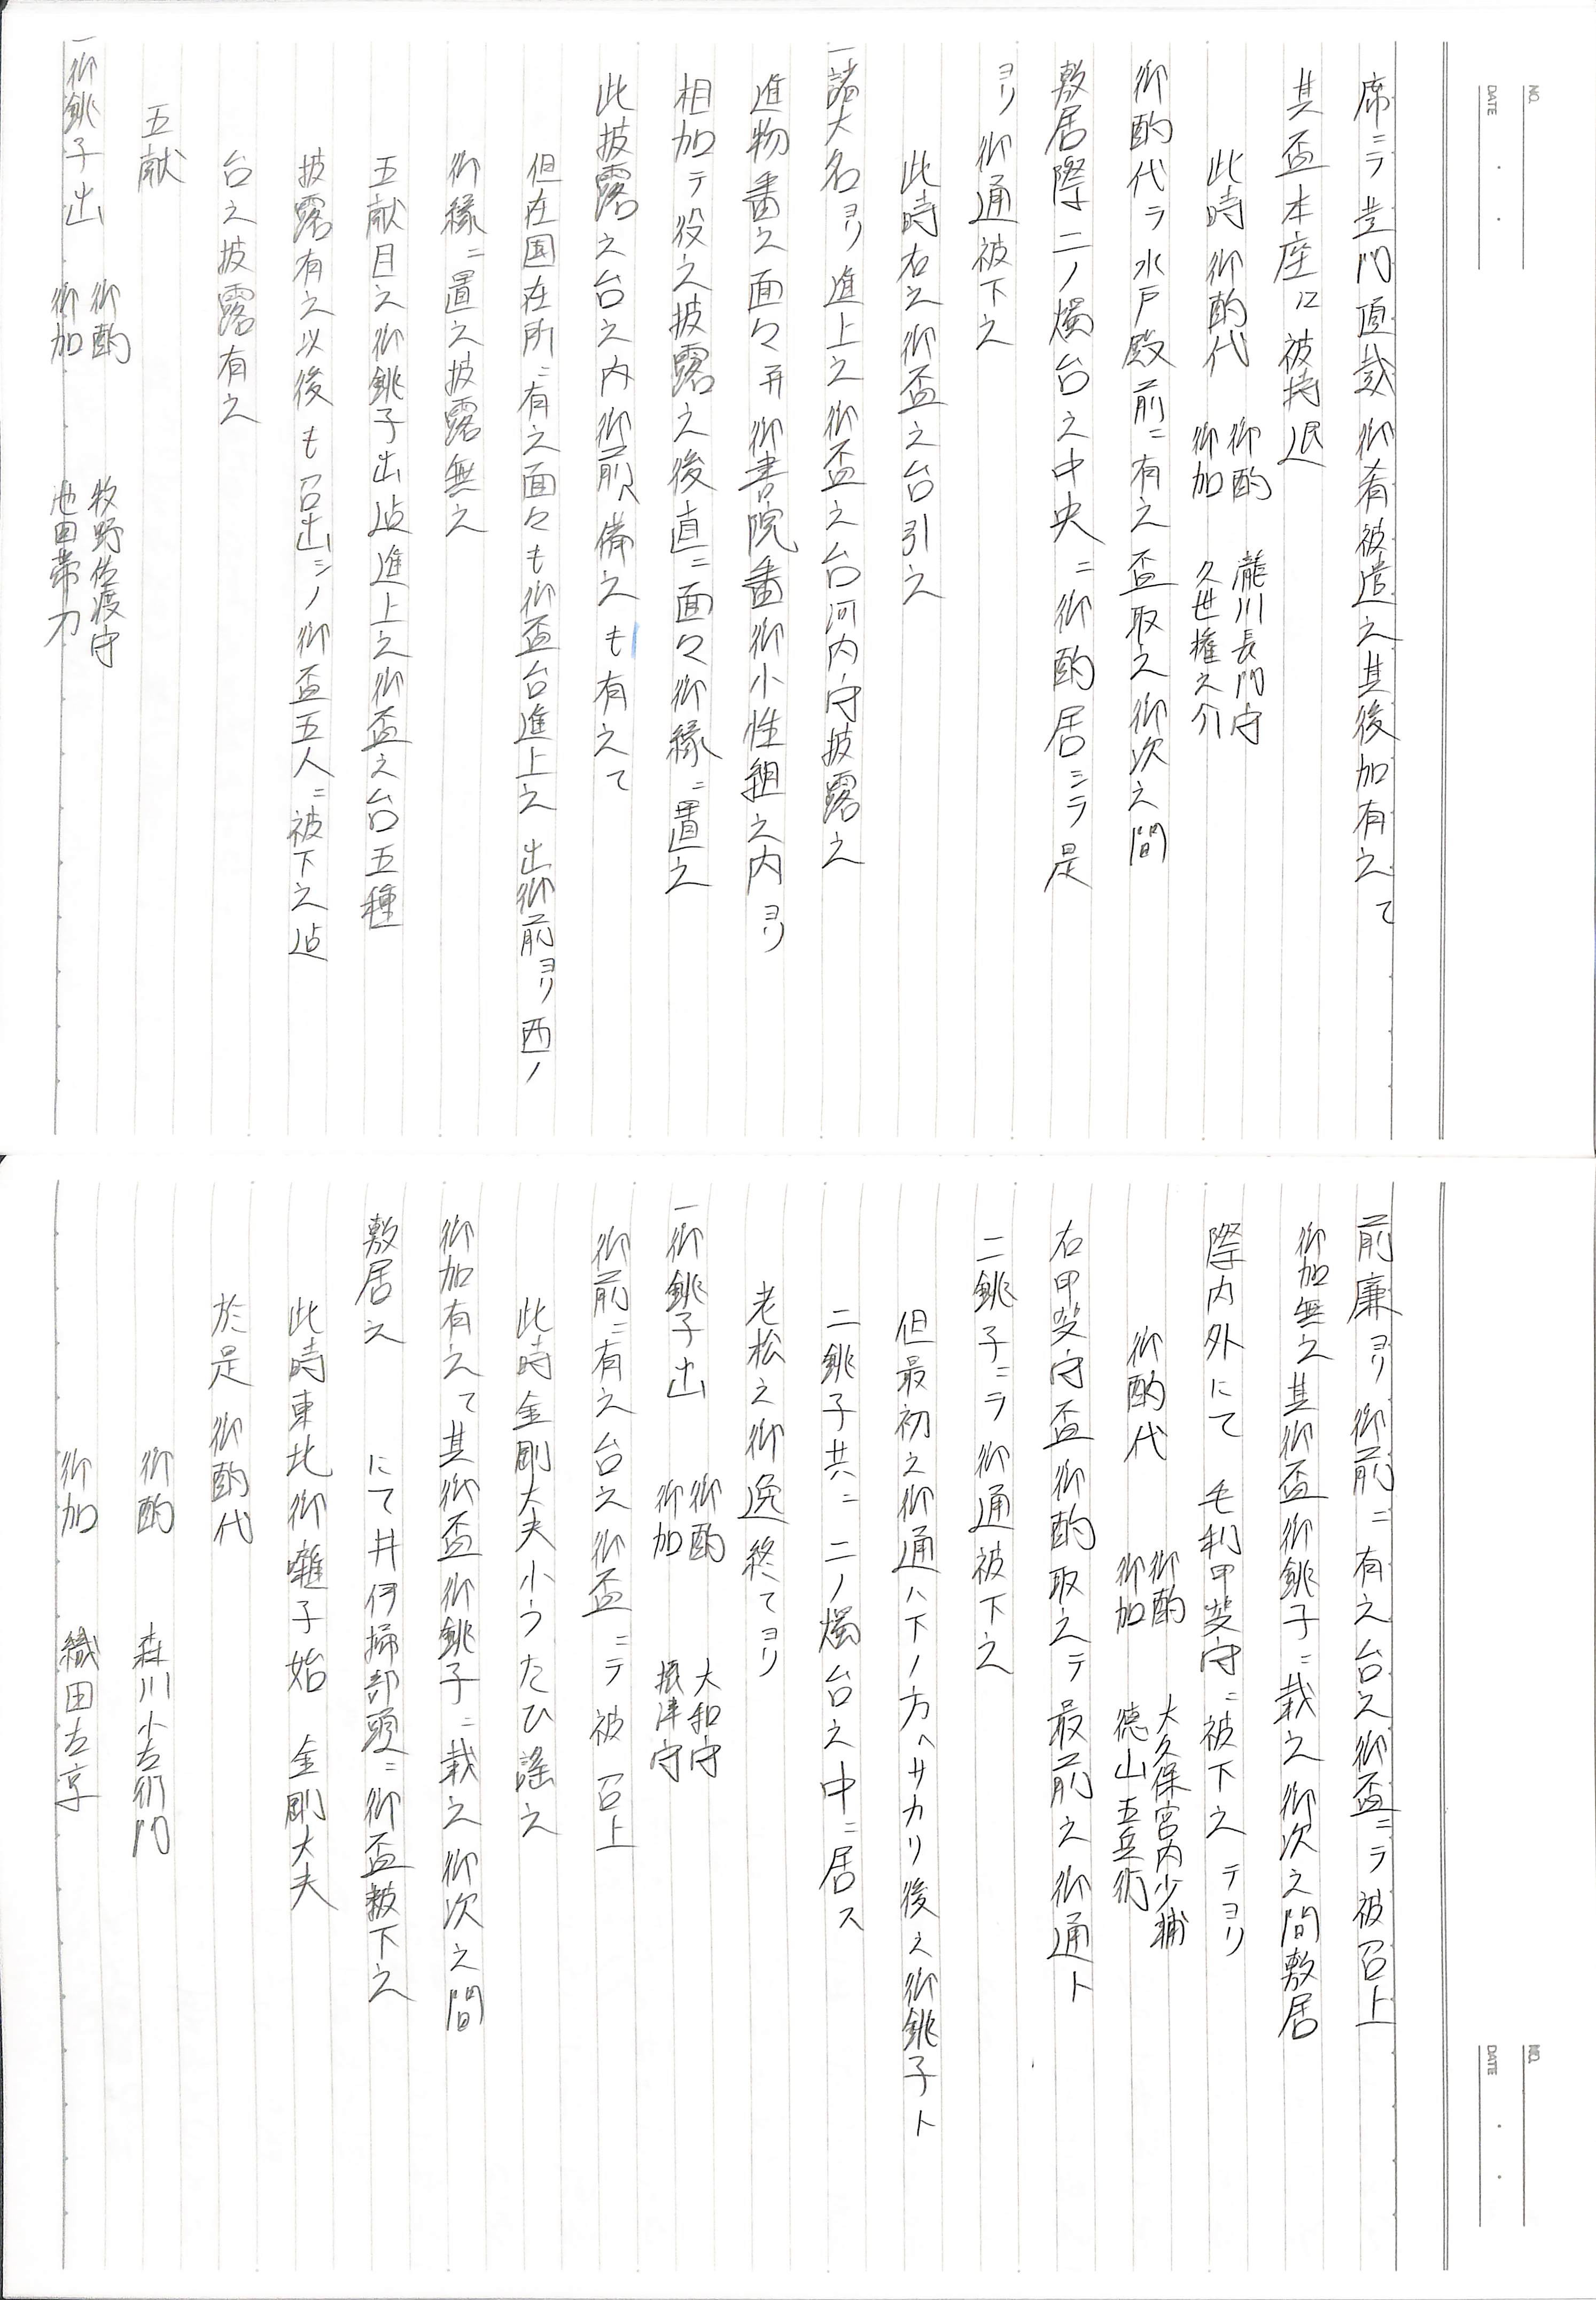 NO.
DATE
席ニテ土門頂戴 御肴被遣之其後加有之て
其盃本座に被持退
此時 御酌代 御酌 瀧川長門守
御加 久世権之介
御酌代ラ水戸殿前ニ有之盃取之御次之間
敷居際二ノ燭台之中央ニ御酌居ニテ是
ヨリ御通被下之
此時右之御盃之台引之
一諸大名ヨリ進上之御盃之台河内守披露之
進物番之面々并御書院番御小性組之内ヨリ
相加テ役之披露之後直ニ面々御縁ニ置之
此披露之台之内御前へ備之も有之て
但在国在所ニ有之面々も御盃台進上之 出御前ヨリ西ノ
御縁ニ置之披露無之
五献目之御銚子出迠進上之御盃之台五種
披露有之以後も召出シノ御盃五人ニ被下之迠
台之披露有之
五献
一御銚子出 御酌 牧野佐渡守
御加 池田帯刀
NO.
DATE
前廉ヨリ御前ニ有之台之御盃ニテ被召上
御加無之其御盃御銚子ニ載之御次之間敷居
際内外にて 毛利甲斐守ニ被下之テヨリ
御酌代 御酌 大久保宮内少輔
御加 徳山五兵衛
右甲斐守盃御酌取之テ最前之御通ト
二銚子ニテ御通被下之
但最初之御通ハ下ノ方へサカリ後之御銚子ト
二銚子共ニ二ノ燭台之中ニ居ス
老松之御逸終てヨリ
一御銚子出 御酌 大和守
御加 摂津守
御前ニ有之台之御盃ニテ被召上
此時金剛大夫小うたひ謡之
御加有之て其御盃御銚子ニ載之御次之間
敷居之 にて井伊掃部頭ニ御盃被下之
此時東北御囃子始 金剛大夫
於是御酌代
御酌 森川小左衛門
御加 織田左京